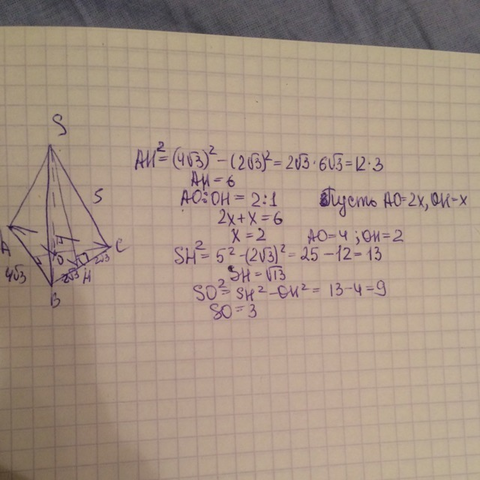 S
5
A
C
O
4√3
2√3
H
2√3
B
AH² = (4√3)² - (2√3)² = 2√3 · 6√3 = 12 · 3
AH = 6
AO:OH = 2:1 Пусть AO=2x, OH=x
2x+x = 6
x = 2 AO=4; OH=2
SH² = 5² - (2√3)² = 25 - 12 = 13
SH = √13
SO² = SH² - OH² = 13-4 = 9
SO = 3